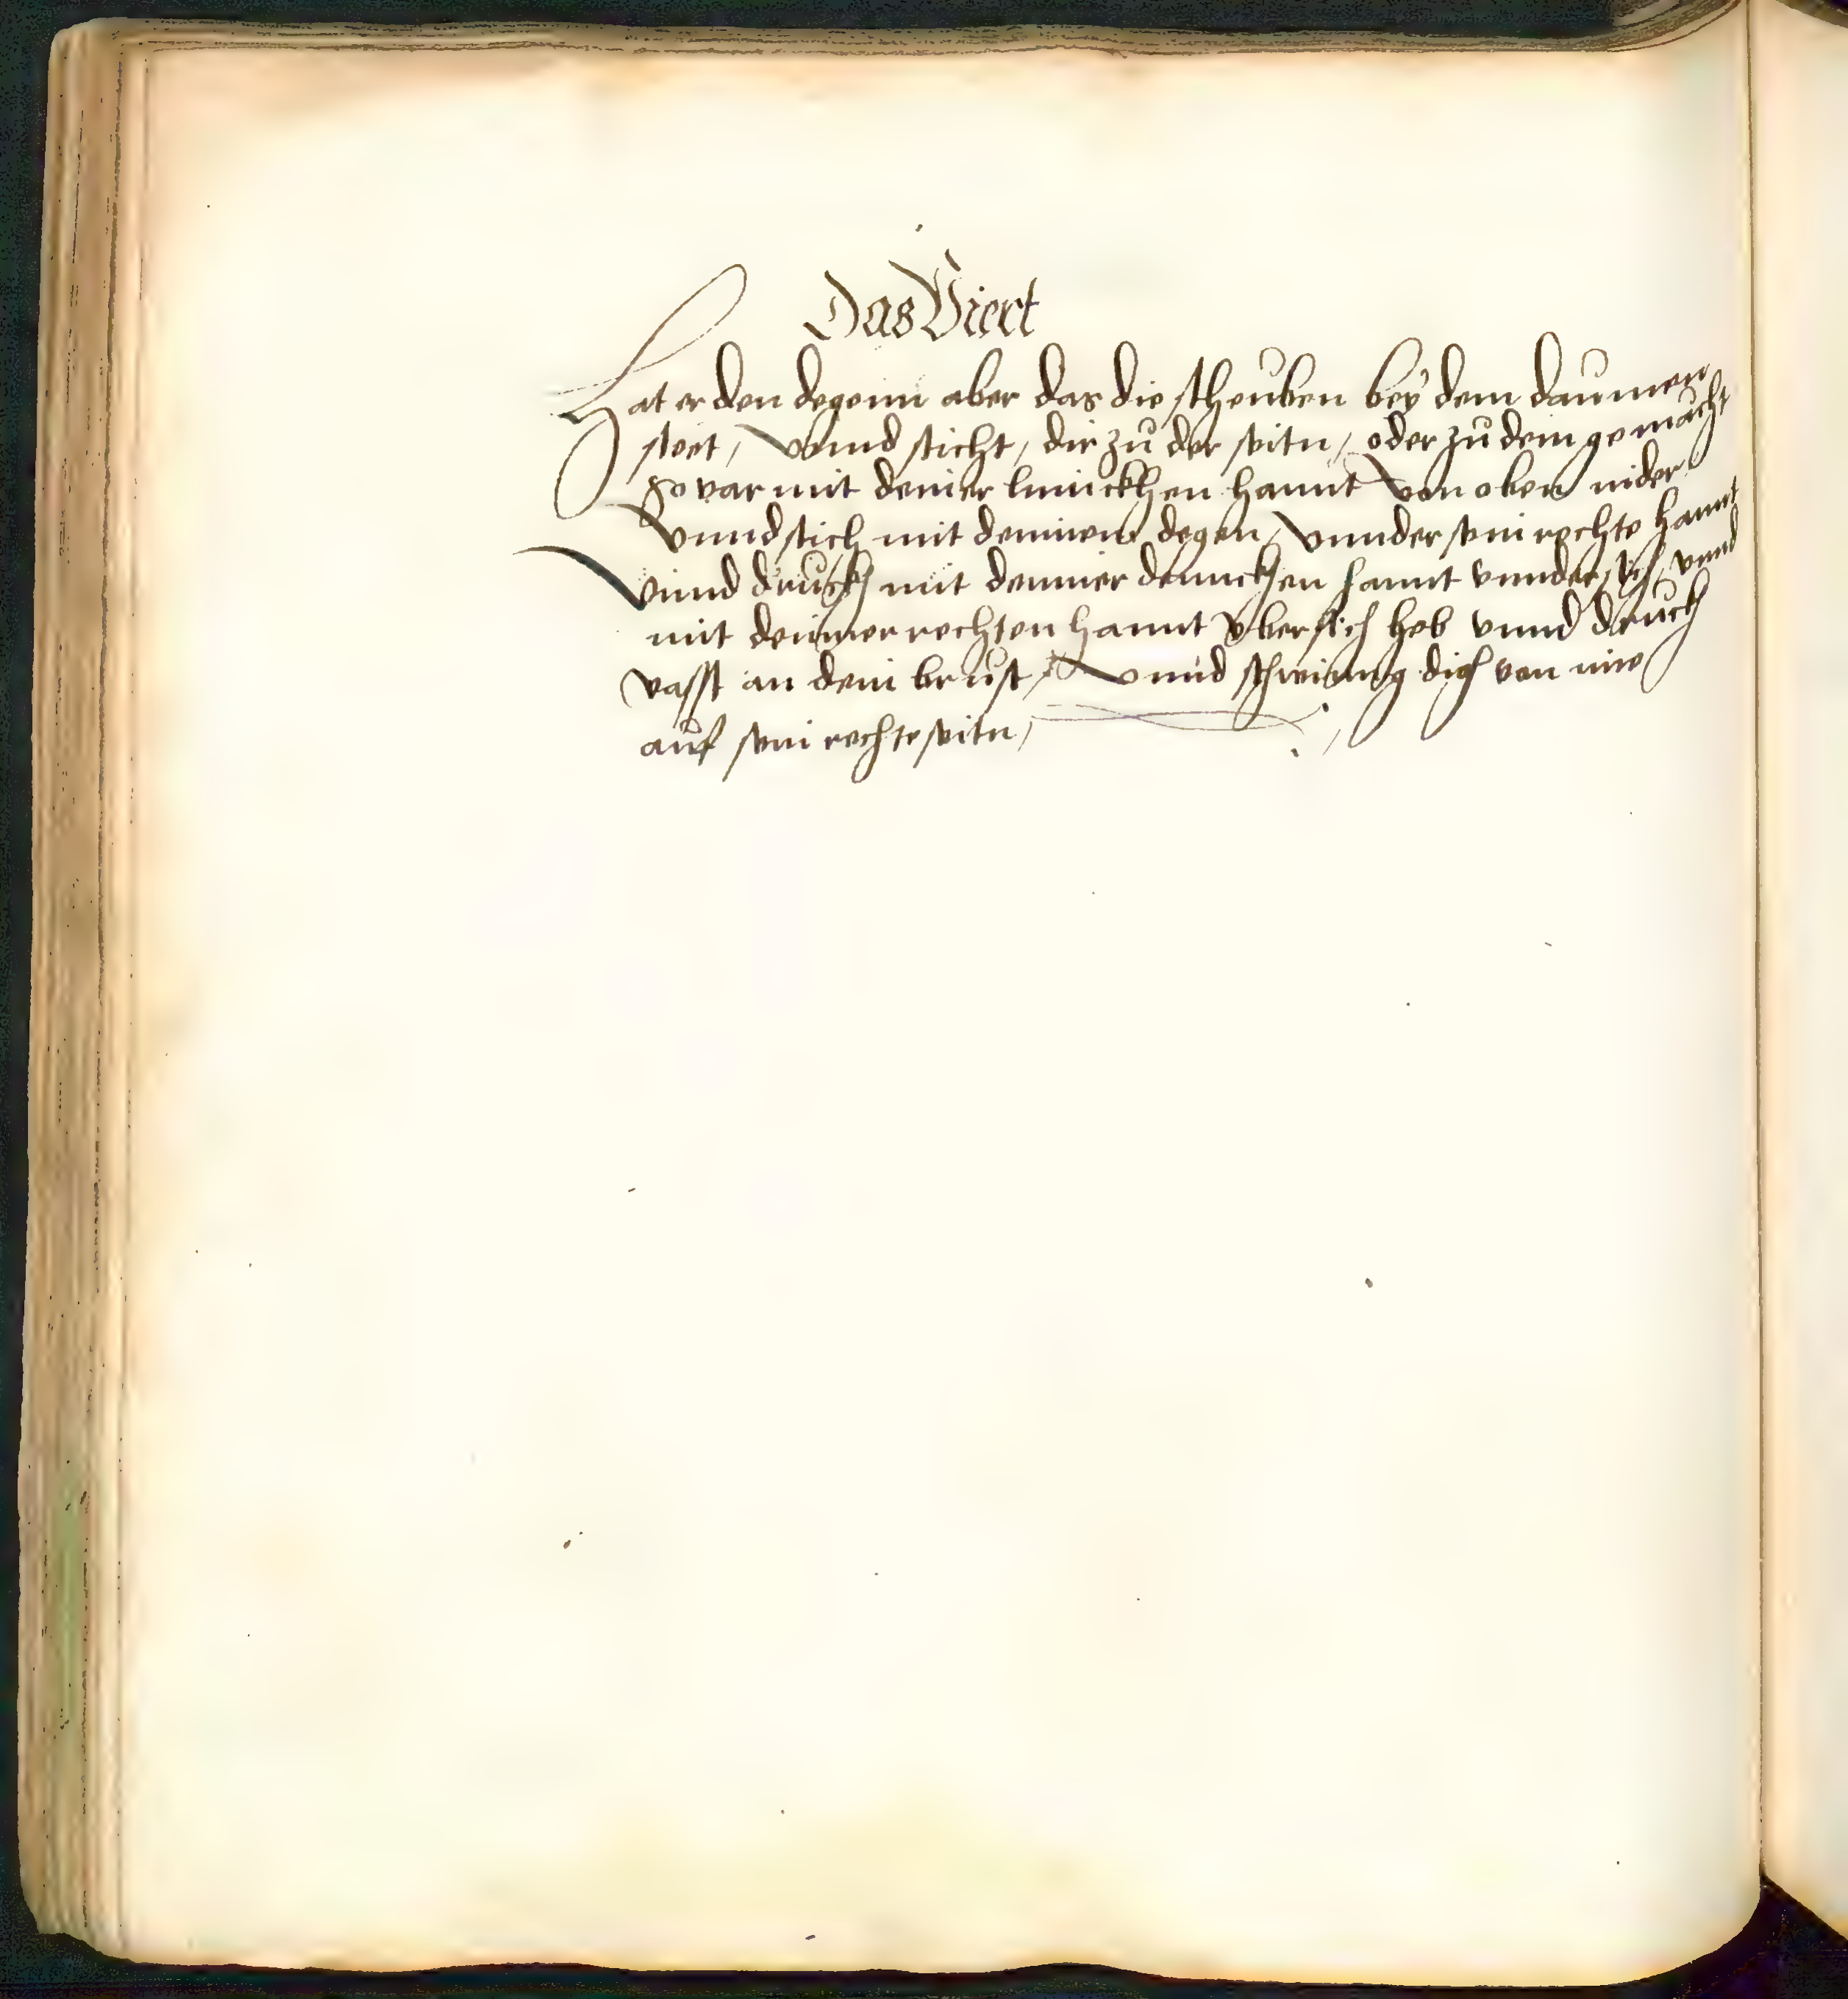 Das Viert
Hat er den degenn aber das die scheuben beÿ dem daumen
steet, Vnnd sticht, dir zu der seitn, oder zu dein gemacht
So var mit deiner linnckhen hannt Von oben nider
Vnnd stich mit deinnem degen, Vnnder sein rechte hannt
Vnnd druckh mit deinner dennckhen hannt vnndersich, vnnd
mit deinner rechten hannt Vbersich heb vnnd druckh
vasst an dein brust, Vnnd schwinng dich von ime
auf sein rechte seitn,